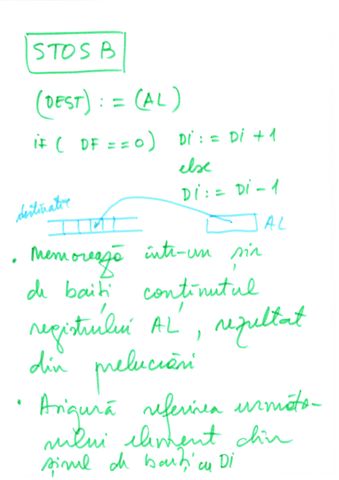 STOSB
(DEST) := (AL)
if ( DF == 0) Di := Di + 1
else
Di := Di - 1
destinatar
AL
• Memorează într-un șir
de baiți conținutul
registrului AL, rezultat
din prelucrări
• Asigură referirea următo-
rului element din
șirul de baiți cu Di